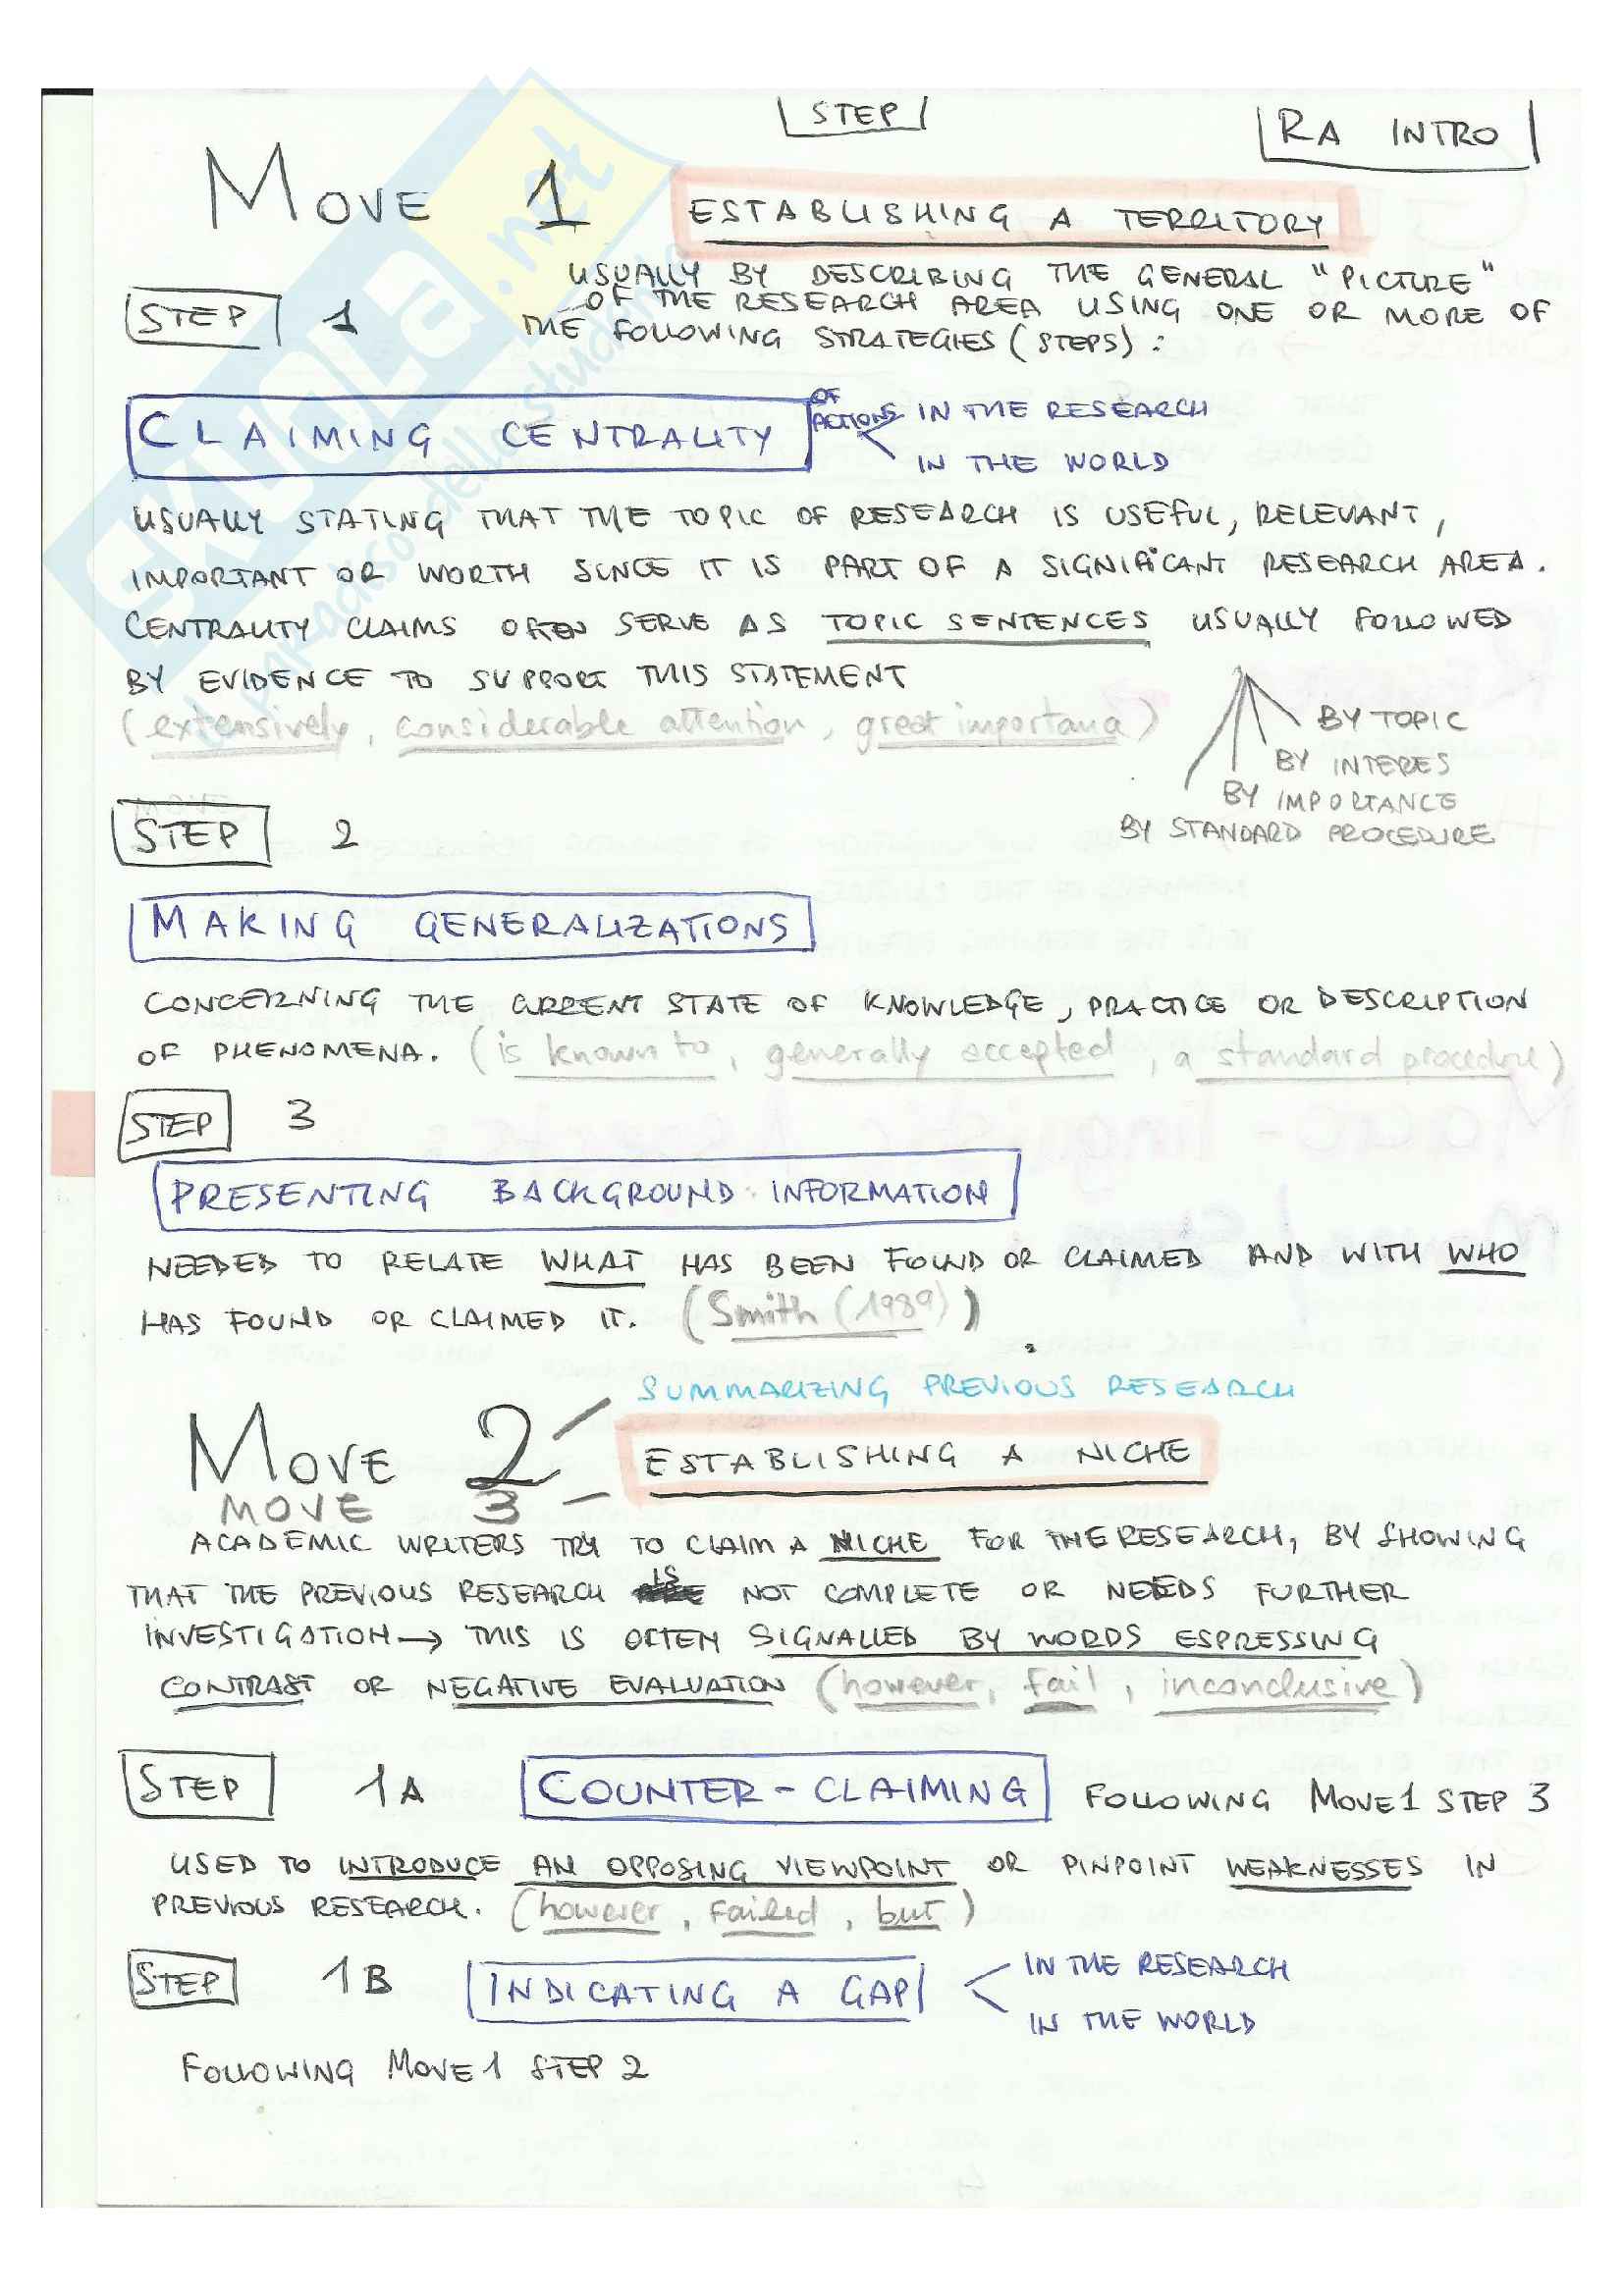 STEP
RA INTRO
MOVE 1 ESTABLISHING A TERRITORY
USUALLY BY DESCRIBING THE GENERAL "PICTURE"
STEP 1 OF THE RESEARCH AREA USING ONE OR MORE OF
THE FOLLOWING STRATEGIES (STEPS):
CLAIMING CENTRALITY OF ACTIONS IN THE RESEARCH
IN THE WORLD
USUALLY STATING THAT THE TOPIC OF RESEARCH IS USEFUL, RELEVANT,
IMPORTANT OR WORTH SINCE IT IS PART OF A SIGNIFICANT RESEARCH AREA.
CENTRALITY CLAIMS OFTEN SERVE AS TOPIC SENTENCES USUALLY FOLLOWED
BY EVIDENCE TO SUPPORT THIS STATEMENT
(extensively, considerable attention, great importance)
BY TOPIC
BY INTERES
BY IMPORTANCE
BY STANDARD PROCEDURE
STEP 2
MAKING GENERALIZATIONS
CONCERNING THE CURRENT STATE OF KNOWLEDGE, PRACTICE OR DESCRIPTION
OF PHENOMENA. (is known to, generally accepted, a standard procedure)
STEP 3
PRESENTING BACKGROUND INFORMATION
NEEDED TO RELATE WHAT HAS BEEN FOUND OR CLAIMED AND WITH WHO
HAS FOUND OR CLAIMED IT. (Smith (1989))
SUMMARIZING PREVIOUS RESEARCH
MOVE 2 ESTABLISHING A NICHE
MOVE 3
ACADEMIC WRITERS TRY TO CLAIM A NICHE FOR THE RESEARCH, BY SHOWING
THAT THE PREVIOUS RESEARCH IS NOT COMPLETE OR NEEDS FURTHER
INVESTIGATION → THIS IS OFTEN SIGNALLED BY WORDS ESPRESSING
CONTRAST OR NEGATIVE EVALUATION (however, fail, inconclusive)
STEP 1A COUNTER-CLAIMING FOLLOWING MOVE 1 STEP 3
USED TO INTRODUCE AN OPPOSING VIEWPOINT OR PINPOINT WEAKNESSES IN
PREVIOUS RESEARCH. (however, failed, but)
STEP 1B INDICATING A GAP IN THE RESEARCH
IN THE WORLD
FOLLOWING MOVE 1 STEP 2
SKUOLA.net
il paradiso dello studente